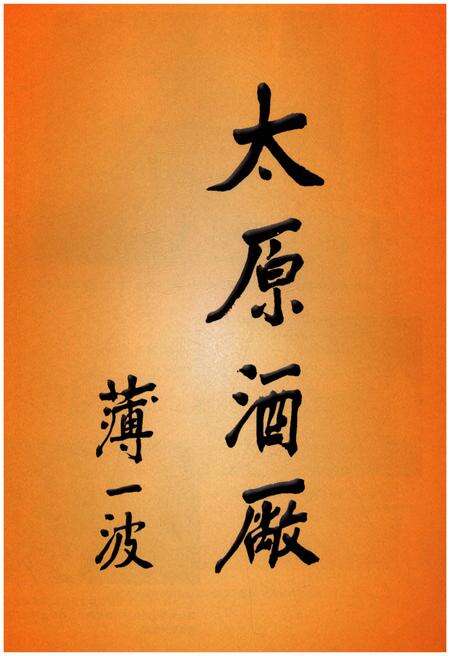 太原酒厰
薄一波